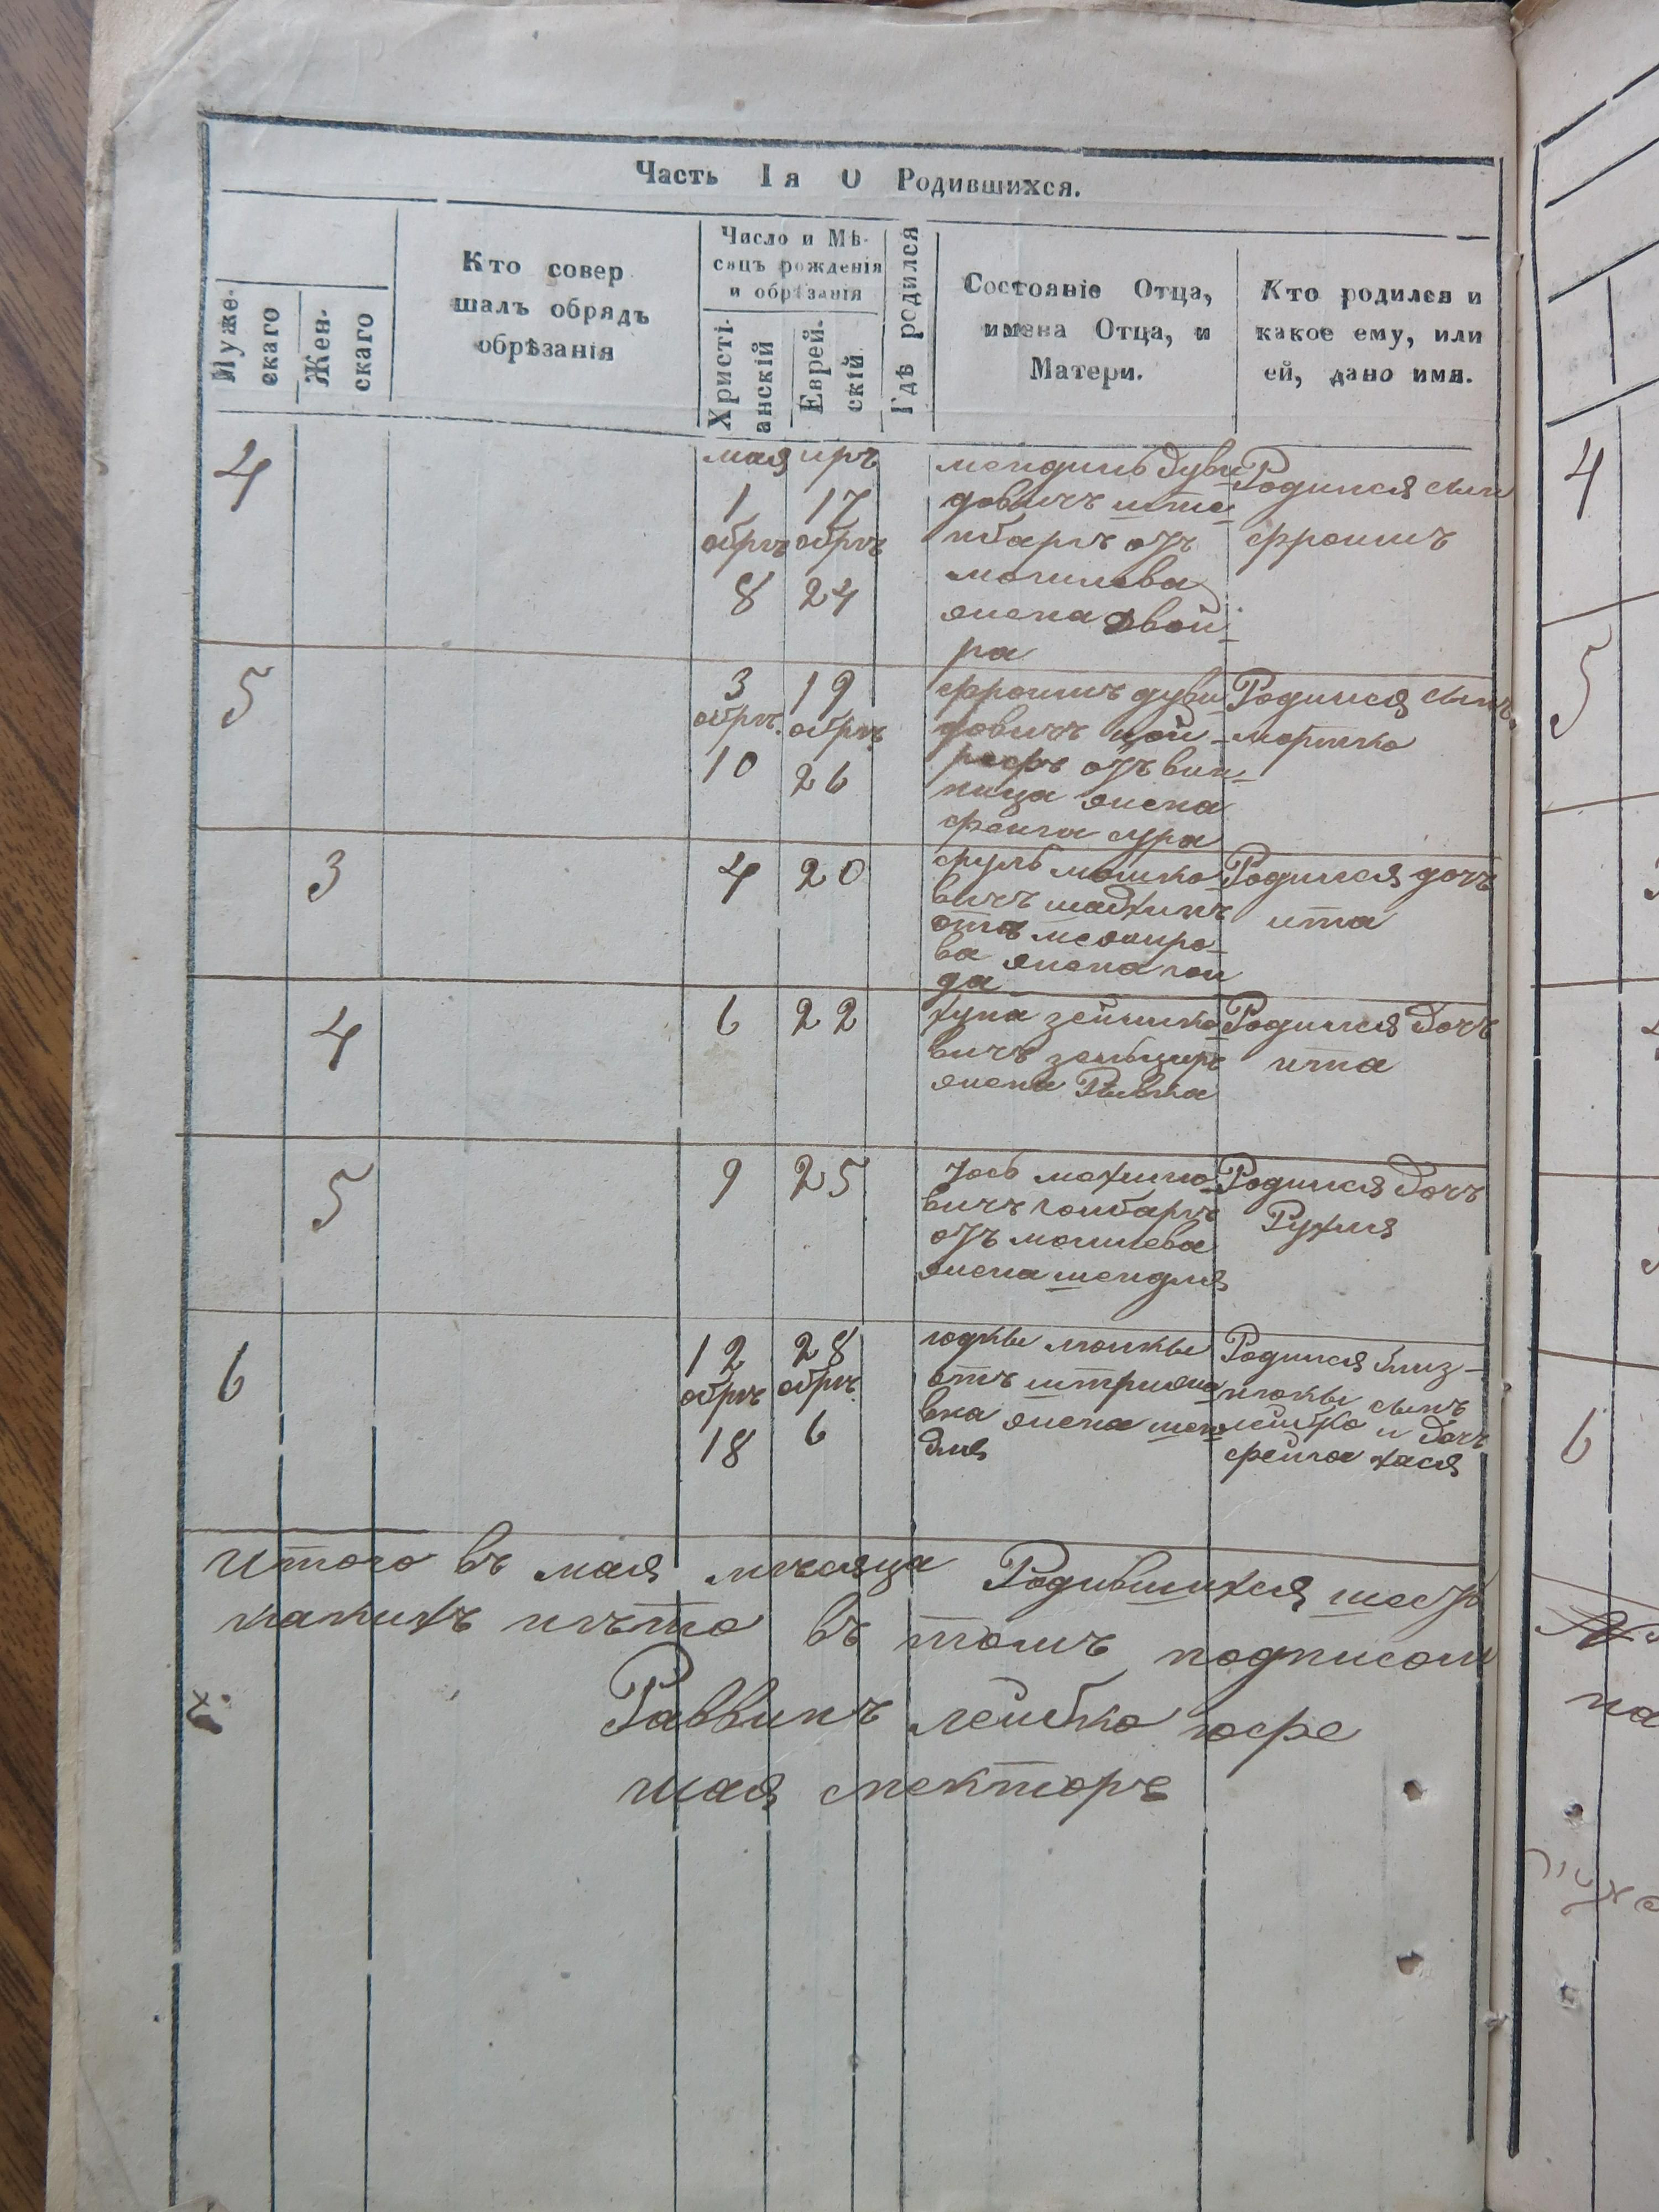 Часть Iя О Родившихся.
Мужескаго
Женскаго
Кто совер
шалъ обрядъ
обрѣзанія
Число и Мѣ-
сяцъ рожденія
и обрѣзанія
Христі-
анскій
Еврей-
скій
Гдѣ родился
Состояніе Отца,
имена Отца, и
Матери.
Кто родился и
какое ему, или
ей, дано имя.
4
мая иръ
1 17
обрѣ обрѣ
8 24
мендиль дуви
довичъ ште
нбаргъ отъ
могилева
жена двой
ра
Родился сын
фроимъ
5
3 19
обрѣ. обрѣ
10 26
фроимъ дуви
довичъ
отъ вин
ница жена
фейга сура
Родился сынъ
мортко
3
4 20
сруль мошко
вичъ
отъ межиро
ва жена гол
да
Родился дочъ
ита
4
6 22
зейлико
вичъ зальцеръ
жена Ривка
Родился дочъ
ита
5
9 25
вичъ голбаргъ
отъ могилева
жена шендля
Родился дочъ
Рухля
6
12 28
обрѣ обрѣ.
18 6
юдки мошки
отъ штрижа
вка жена шен
для
Родился близ-
нюки сынъ
лейбко и дочъ
фейга хася
Итого въ мая мѣсяца Родившихся шесть
какихъ въ томъ подписом
Раввинъ лейбко юфе
шая спекторъ
4
5
6